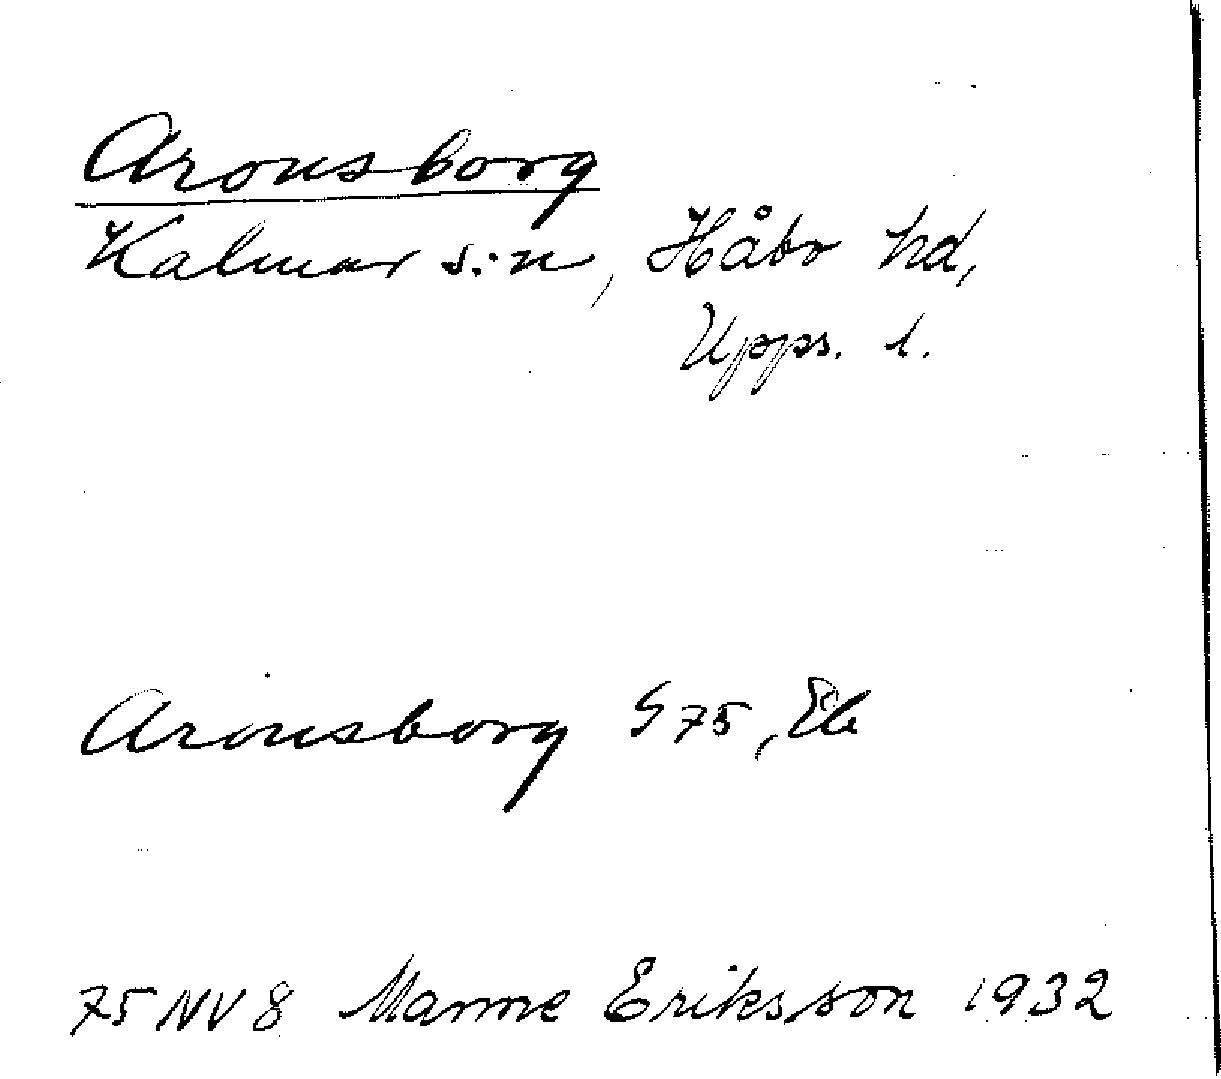 Aronsborg
Kalmar s:n, Håbo hd,
Upps. l.
Aronsborg S 75, Eb
75 NV 8 Manne Eriksson 1932